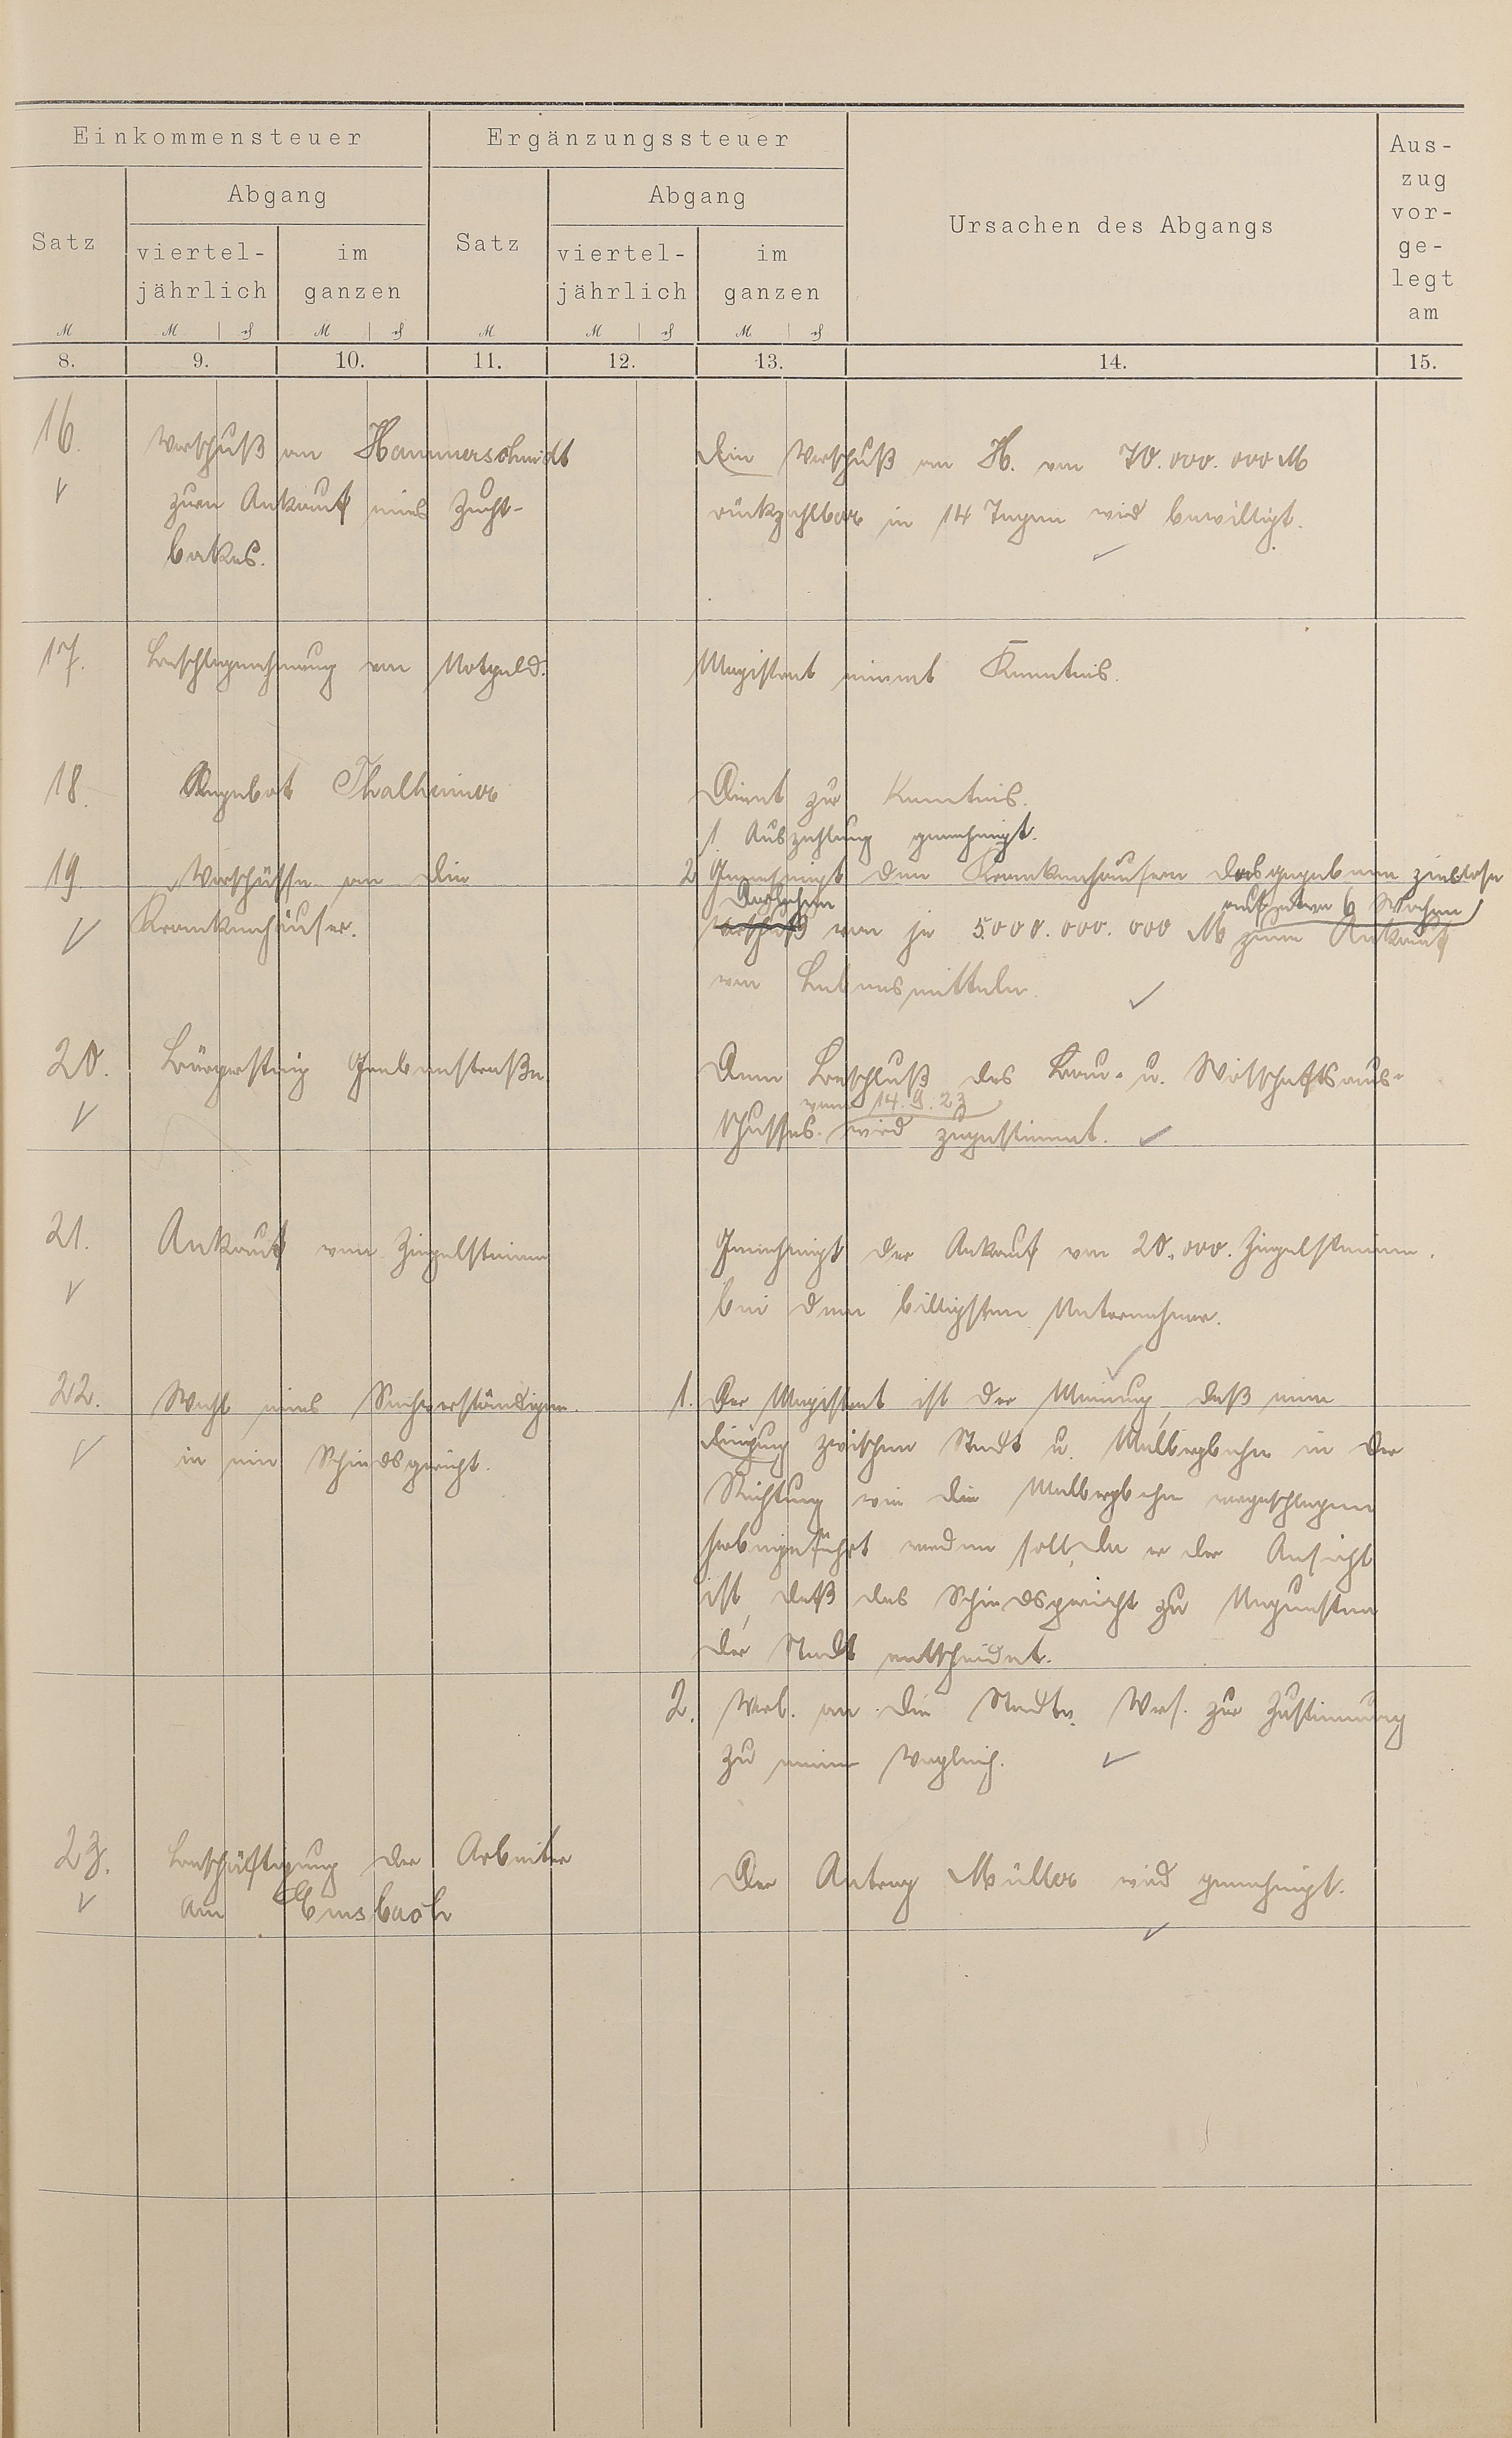 Einkommensteuer
Ergänzungssteuer
Ursachen des Abgangs
Aus-
zug
vor-
ge-
legt
am
Satz
Abgang
Satz
Abgang
viertel-
jährlich
im
ganzen
viertel-
jährlich
im
ganzen
M M ₰ M ₰ M M ₰ M ₰
8. 9. 10. 11. 12. 13. 14. 15.
16. Vorschuß an Hammerschmidt
zum Ankauf eines Zucht-
Ein Vorschuß an H. von 70.000.000 M
rückzahlbar in 14 Tagen wird bewilligt.
17. Beschlagnahmung von Notgeld.
Magistrat nimmt Kenntnis.
18. Angebot Thalheimer
Dient zur Kenntnis.
19 Vorschüsse an die
Krankenhäuser.
1. Auszahlung genehmigt.
2. Genehmigt den Krankenhäusern das gegebene zinslose
Darlehen auf etwa 6 Wochen
Vorschuß von je 5000.000.000 M zum Ankauf
von Lebensmitteln.
20. Bürgersteig Grabenstraße
Dem Beschluß des Bau- u. Wirtschaftsaus-
vom 14.9.23
schusses wird zugestimmt.
21. Ankauf von Ziegelsteinen
Genehmigt der Ankauf von 20.000. Ziegelsteinen.
bei dem billigsten Unternehmer.
22. Wahl eines Sachverständigen
in ein Schiedsgericht.
1. Der Magistrat ist der Meinung, daß eine
Einigung zwischen Stadt u. Malbergbahn in der
Richtung wie die Malbergbahn vorgeschlagen
herbeigeführt werden soll, da er der Ansicht
ist, daß das Schiedsgericht zu Ungunsten
der Stadt entscheidet.
2. Vorl. an die Stadtv. Vers. zur Zustimmung
zu einem Vergleich.
23. Beschäftigung der Arbeiter
am Emsbach
Der Antrag Müller wird genehmigt.